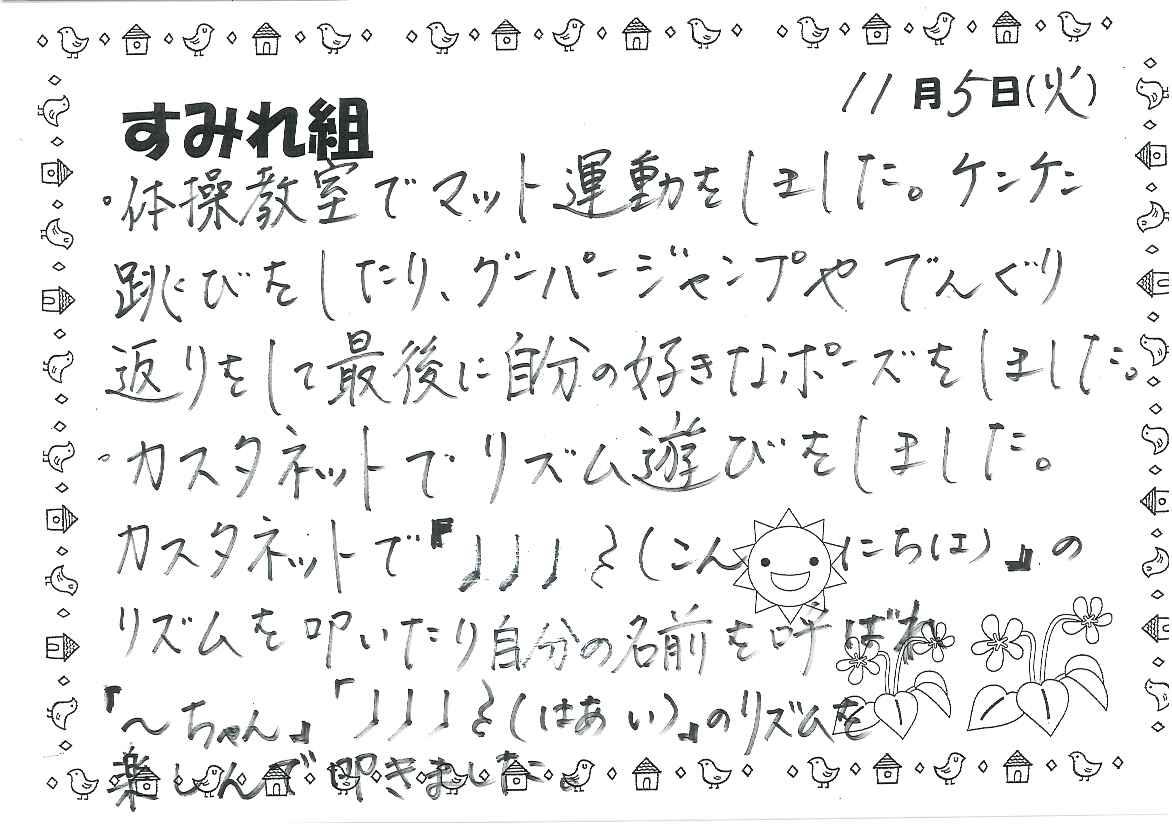 11月5日(火)
すみれ組
・体操教室でマット運動をしました。ケンケン
跳びをしたり、グーパージャンプやでんぐり
返りをして最後に自分の好きなポーズをしました。
・カスタネットでリズム遊びをしました。
カスタネットで『♩♩♩𝄽(こんにちは)』の
リズムを叩いたり自分の名前を呼ばれ
『〜ちゃん』「♩♩♩𝄽(はあい)』のリズムを
楽しんで叩きました。